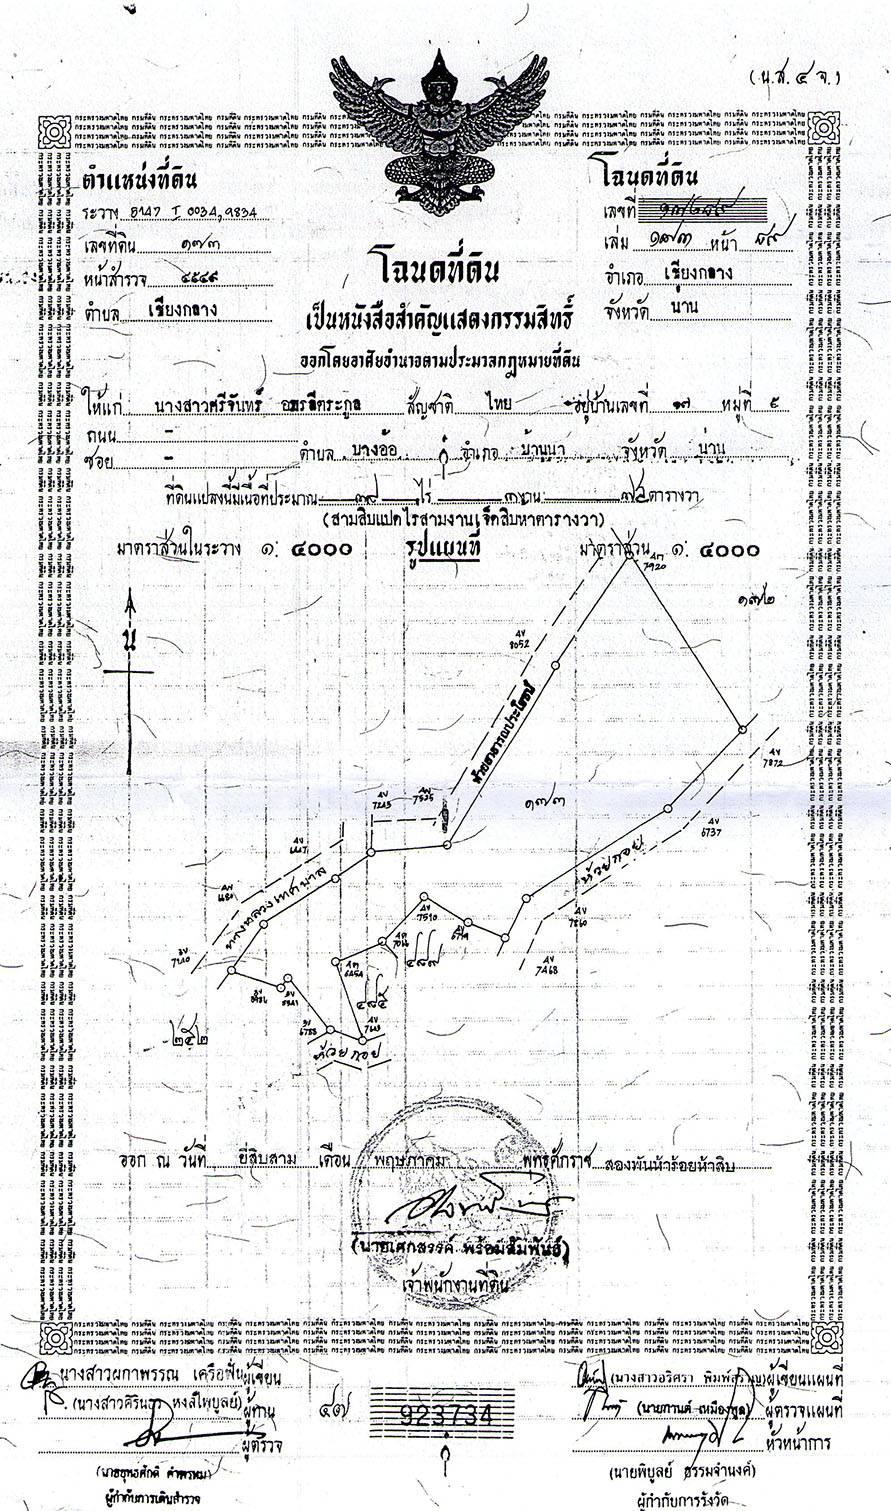 (น.ส. ๔ จ.)
ตำแหน่งที่ดิน
ระวาง 5147 I 0034, 9834
เลขที่ดิน ๑๗๓
หน้าสำรวจ ๔๕๔๙
ตำบล เชียงกลาง
โฉนดที่ดิน
เลขที่
เล่ม ๑๗๓ หน้า ๘๙
อำเภอ เชียงกลาง
จังหวัด น่าน
โฉนดที่ดิน
เป็นหนังสือสำคัญแสดงกรรมสิทธิ์
ออกโดยอาศัยอำนาจตามประมวลกฎหมายที่ดิน
ให้แก่ นางสาวศรีจันทร์ สัญชาติ ไทย อยู่บ้านเลขที่ ๑๗ หมู่ที่ ๙
ถนน -
ซอย - ตำบล บางอ้อ อำเภอ บ้านนา จังหวัด น่าน
ที่ดินแปลงนี้มีเนื้อที่ประมาณ ๓๘ ไร่ ๓ งาน ๗๕ ตารางวา
(สามสิบแปดไร่สามงานเจ็ดสิบห้าตารางวา)
มาตราส่วนในระวาง ๑: ๔๐๐๐ รูปแผนที่ มาตราส่วน ๑: ๔๐๐๐
7920
๑๗๒
น
8052
ห้วยสาธารณประโยชน์
7872
7243
7535
๑๗๓
6737
ห้วยกอย
ทางหลวงเทศบาล
7510
7860
7468
๔๘๙
๔๘๕
6788
๒๕๒
ห้วยกอย
ออก ณ วันที่ ยี่สิบสาม เดือน พฤษภาคม พุทธศักราช สองพันห้าร้อยห้าสิบ
(นายเศกสรรค์ พร้อมสัมพันธ์)
เจ้าพนักงานที่ดิน
นางสาวผกาพรรณ เครือฟั่น ผู้เขียน
(นางสาวศิริ หงส์ไพบูลย์) ผู้ทาน
ผู้ตรวจ
(นายยุทธศักดิ์)
ผู้กำกับการเดินสำรวจ
๔๗
923734
(นางสาวอริศรา) ผู้เขียนแผนที่
(นายกานต์ เหมืองชูล) ผู้ตรวจแผนที่
หัวหน้าการ
(นายพิบูลย์ ธรรมจำนงค์)
ผู้กำกับการรังวัด